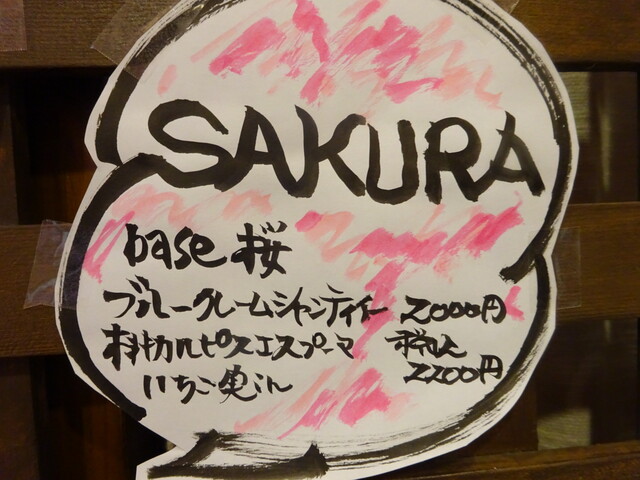 SAKURA
base 桜
ブルークレームシャンティイー 2000円
カルピスエスプーマ 税込
いちご 2200円